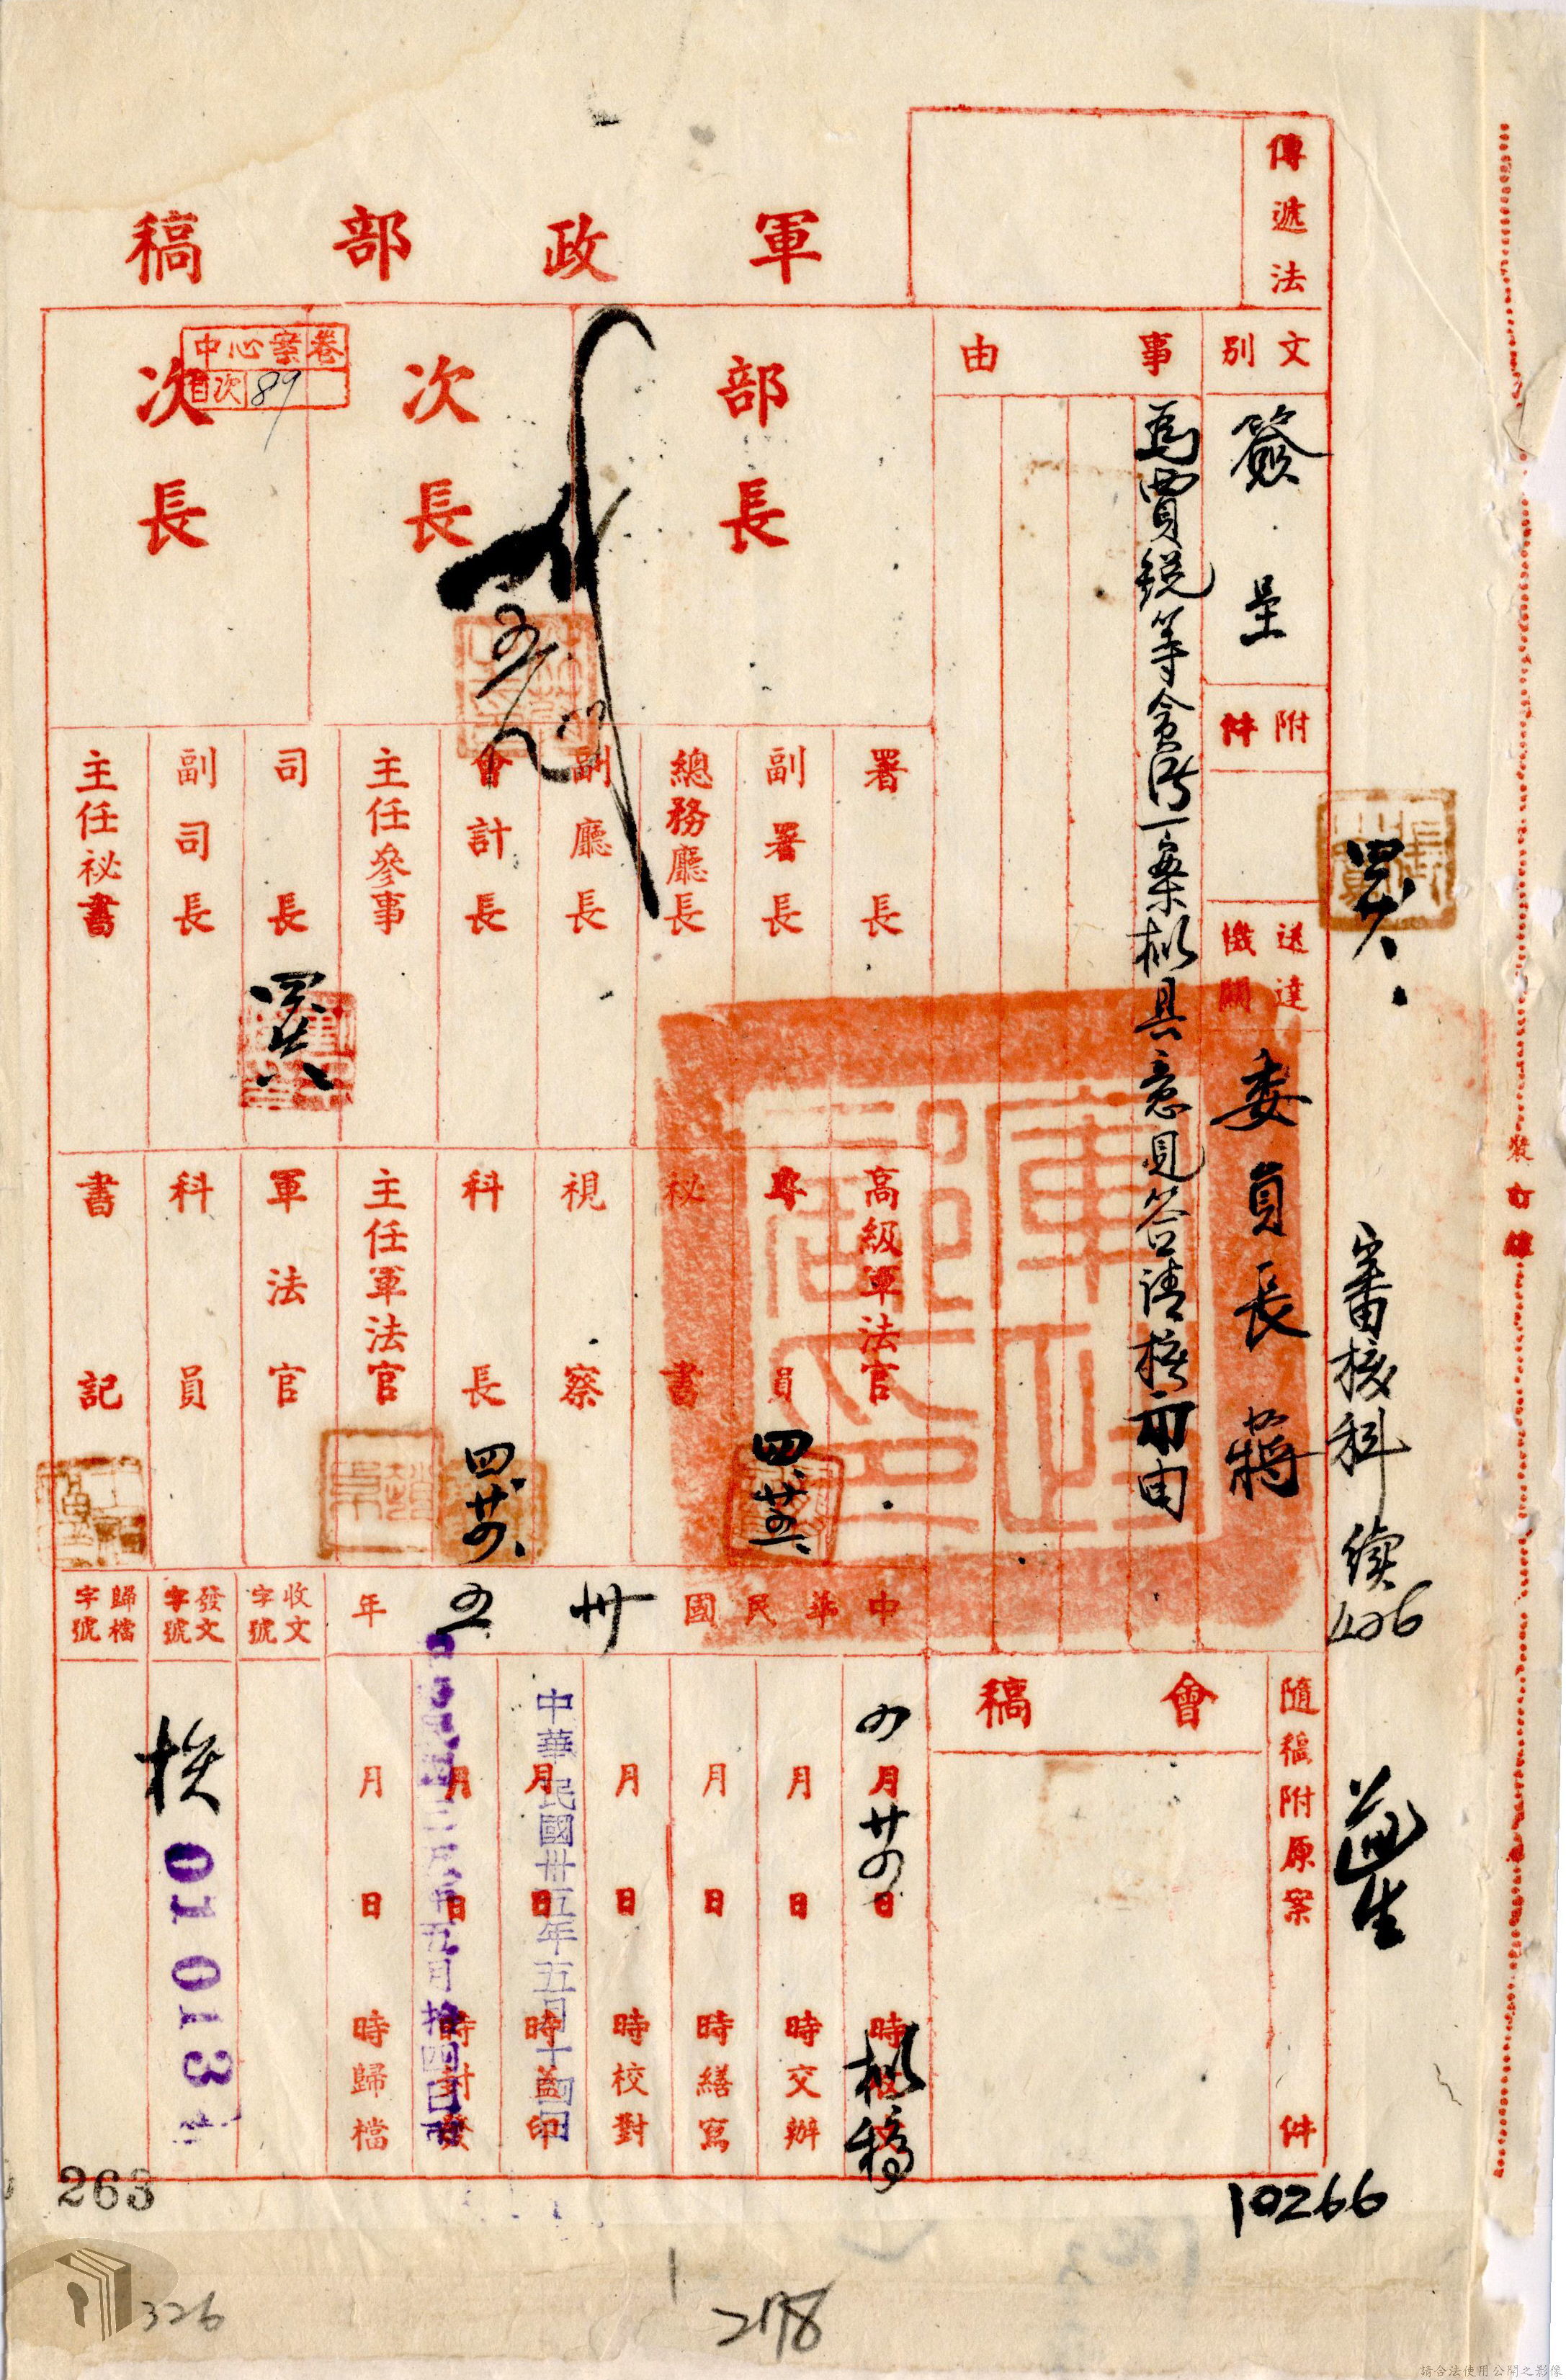 軍政部稿
傳遞法
文別
簽呈
附件
送達機關
委員長蔣
事由
為賈銳等貪污一案擬具意見簽請核示由
部長
次長
次長
中心案卷
目次 89
署長
副署長
總務廳長
副廳長
會計長
主任參事
司長
副司長
主任祕書
高級軍法官
專員
四 廿五
祕書
視察
科長
四 廿四
主任軍法官
軍法官
科員
書記
審核科
10266
裝訂線
中華民國卅五年
隨稿附原案 件
會稿
四月廿四日 時擬稿
月 日 時交辦
月 日 時繕寫
月 日 時校對
月 日 時蓋印
中華民國卅五年五月十四日
月 日 時封發
月 日 時歸檔
收文字號
發文字號
01013
歸檔字號
263
326
2178
請合法使用公開之影像